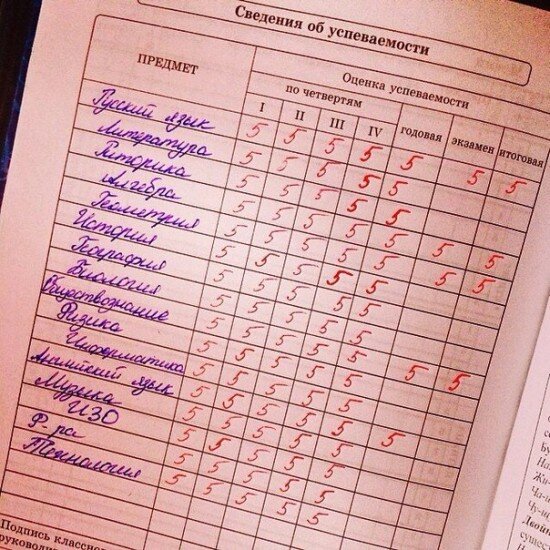 Сведения об успеваемости
ПРЕДМЕТ
Оценка успеваемости
по четвертям
I II III IV годовая экзамен итоговая
Русский язык 5 5 5 5 5 5 5
Литература 5 5 5 5 5
Риторика 5 5 5 5 5
Алгебра 5 5 5 5 5 5 5
Геометрия 5 5 5 5 5 5 5
История 5 5 5 5
География 5 5 5 5
Биология 5 5 5 5
Обществознание 5 5 5 5 5 5
Физика 5 5 5 5
Информатика 5 5 5 5
Английский язык 5 5 5 5 5
Музыка 5 5 5 5
ИЗО 5 5 5 5
Ф-ра 5 5 5 5
Технология 5 5 5 5
Подпись классног
руководи